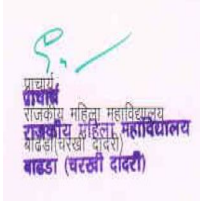 प्राचार्य
प्राचार्य
राजकीय महिला महाविद्यालय
राजकीय महिला महाविद्यालय
बाढडा(चरखी दादरी)
बाढडा (चरखी दादरी)